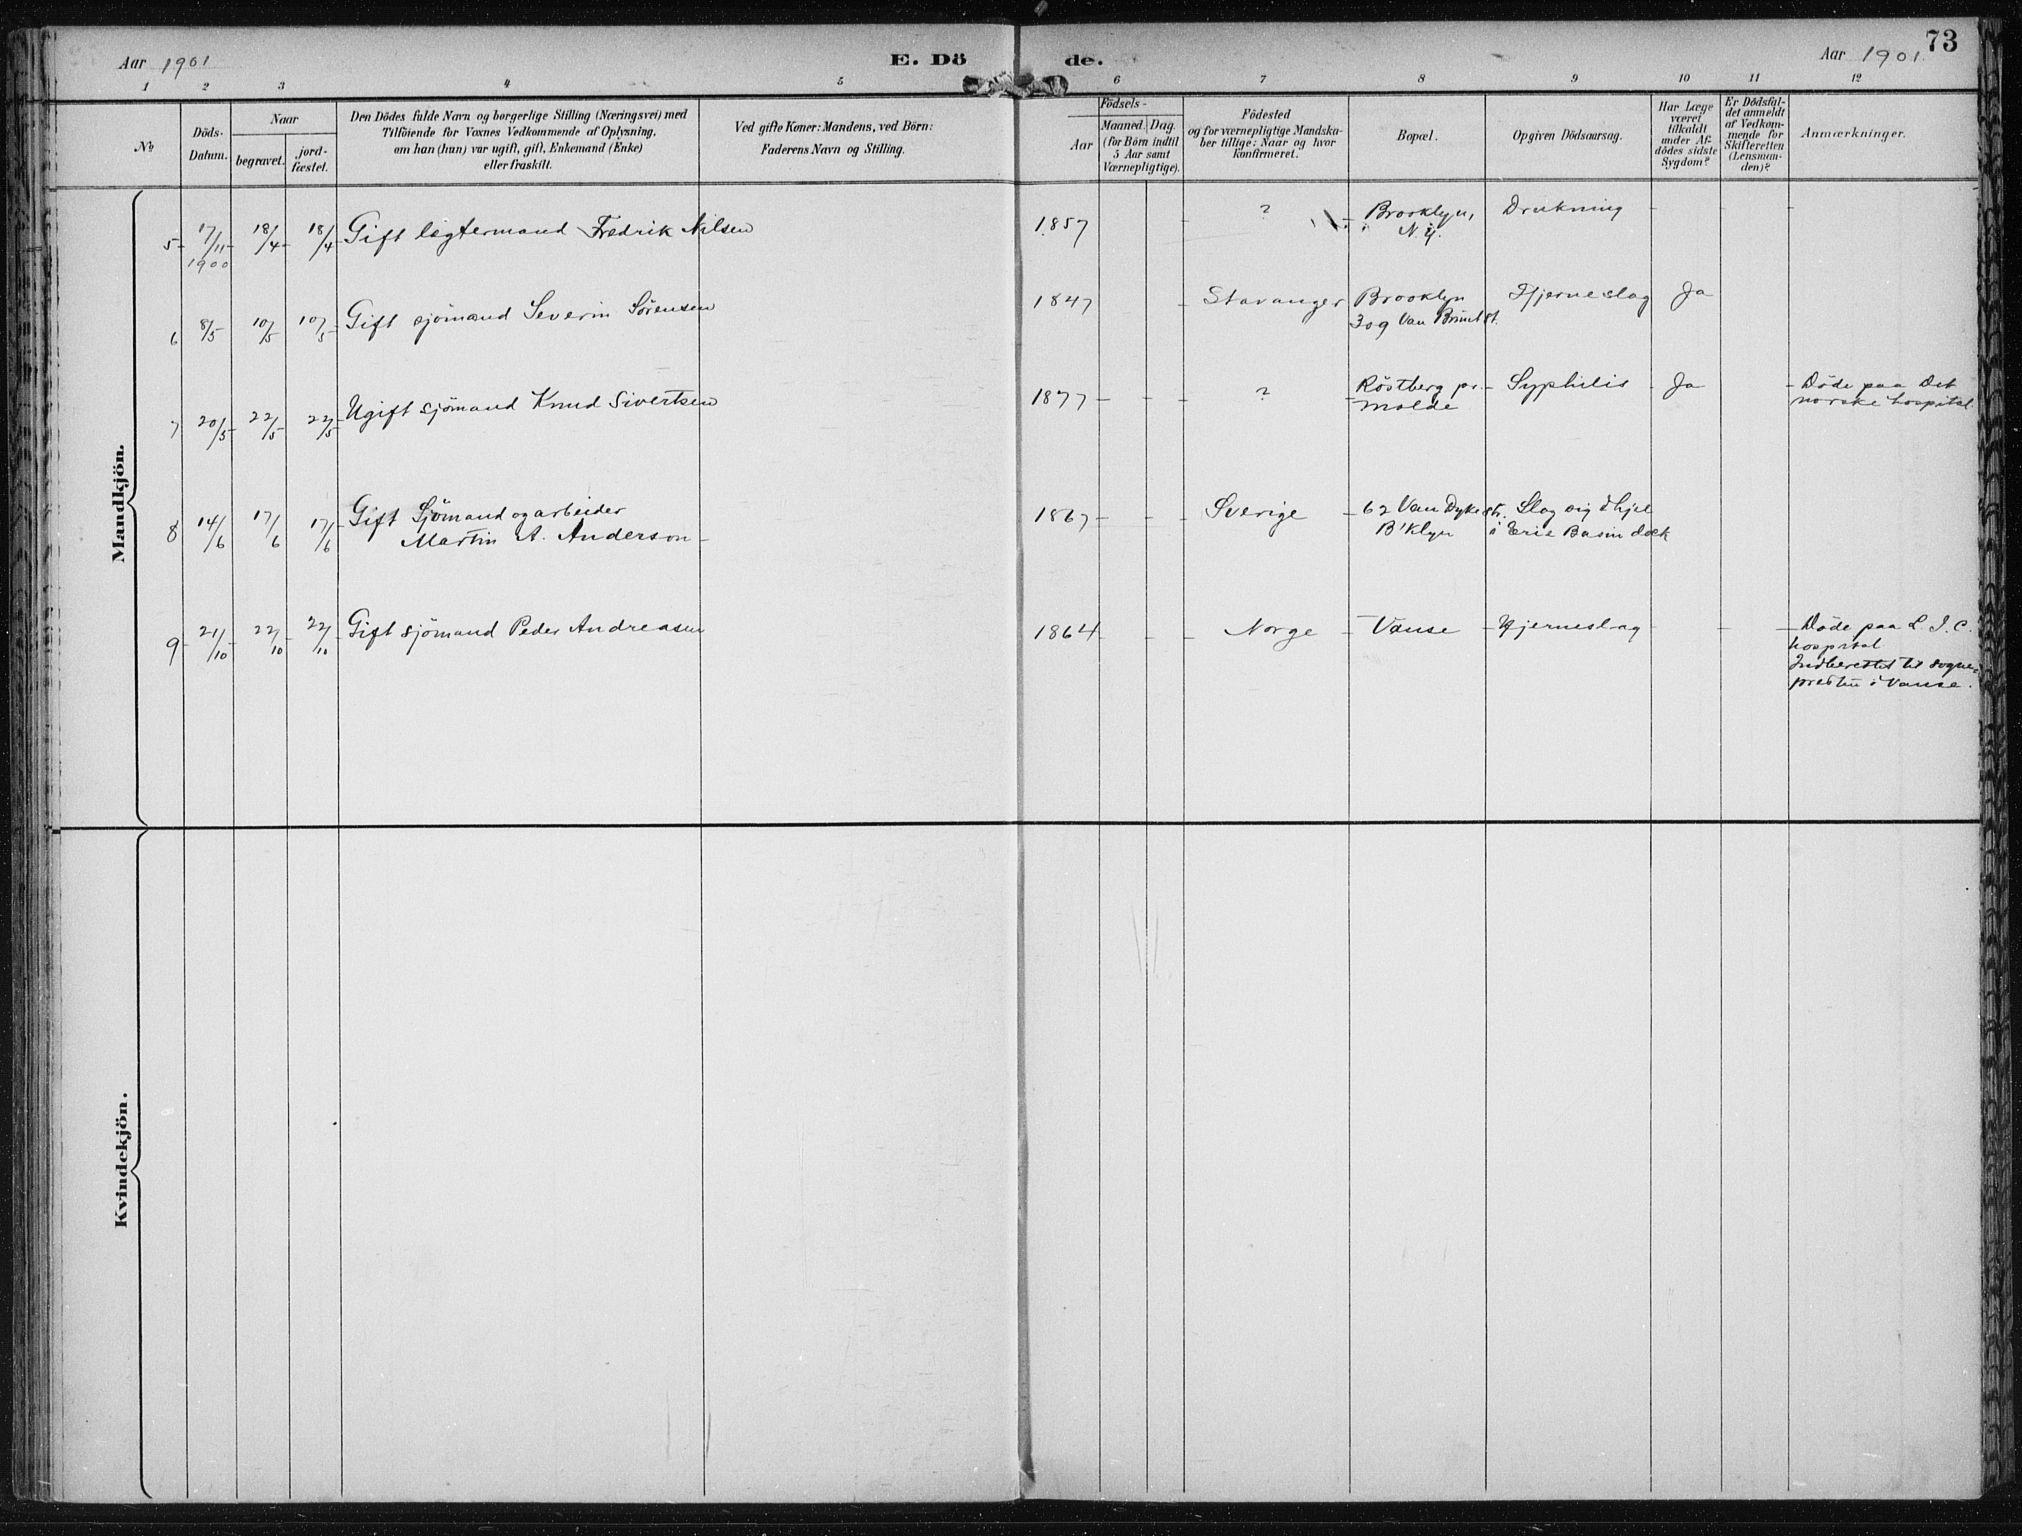 73
Aar 1901
E. Dö de.
Aar 1901
1 2 3 4 5 6 7 8 9 10 11 12
No
Döds-
Datum.
Naar
begravet.
jord-
fæstet.
Den Dödes fulde Navn og borgerlige Stilling (Næringsvei) med
Tilföiende for Voxnes Vedkommende af Oplysning,
om han (hun) var ugift, gift, Enkemand (Enke)
eller fraskilt.
Ved gifte Koner: Mandens, ved Börn:
Faderens Navn og Stilling.
Födsels-
Aar
Maaned. Dag.
(for Börn indtil
5 Aar samt
Værnepligtige).
Födested
og for værnepligtige Mandska-
ber tillige: Naar og hvor
konfirmeret.
Bopæl.
Opgiven Dödsaarsag.
Har Læge
været
tilkaldt
under Af-
dödes sidste
Sygdom?
Er Dödsfal-
det anmeldt
af Vedkom-
mende for
Skifteretten
(Lensman-
den)?
Anmærkninger.
Mandkjön.
5 17/11 1900 18/4 18/4 Gift lægtermand Fredrik Nilsen 1857 ? Brooklyn, Drukning
N.Y.
6 8/5 10/5 10/5 Gift sjömand Severin Sörensen 1847 Stavanger Brooklyn Hjerneslag Ja
309 Van Brunt st.
7 20/5 22/5 22/5 Ugift sjömand Knud Sivertsen 1877 ? Röstberg pr. Syphilis Ja Döde paa Det
Molde norske hospital.
8 14/6 17/6 17/6 Gift Sjömand og arbeider 1867 Sverige 62 Van Dyke str. Slog sig ihjel
Martin A. Anderson B'klyn i Erie Basin dock
9 21/10 22/10 22/10 Gift sjömand Peder Andreasen 1864 Norge Vanse Hjerneslag Döde paa L. I. C.
hospital
Indberettet til sogne-
presten i Vanse.
Kvindekjön.